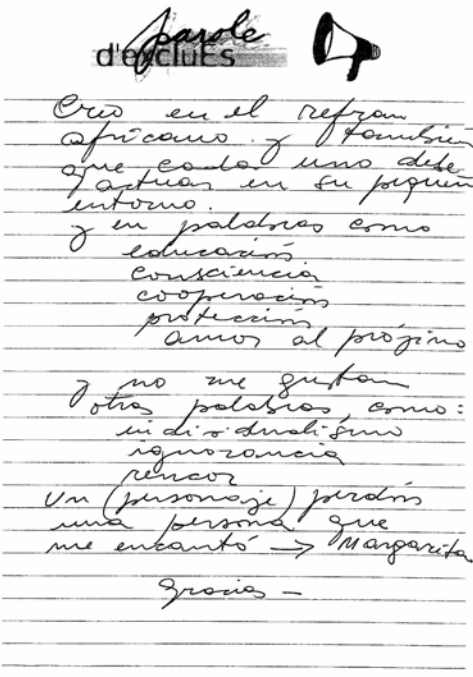 parole
d'excluEs
Creo en el refran
africano. y también
que cada uno debe
actuar en su pequeñ
entorno.
y en palabras como
educación
consciencia
cooperación
protección
amor al prójimo
y no me gustan
otras palabras, como:
individualismo
ignorancia
rencor
Un (personaje) perdón
una persona que
me encantó → Margarita
Gracias -